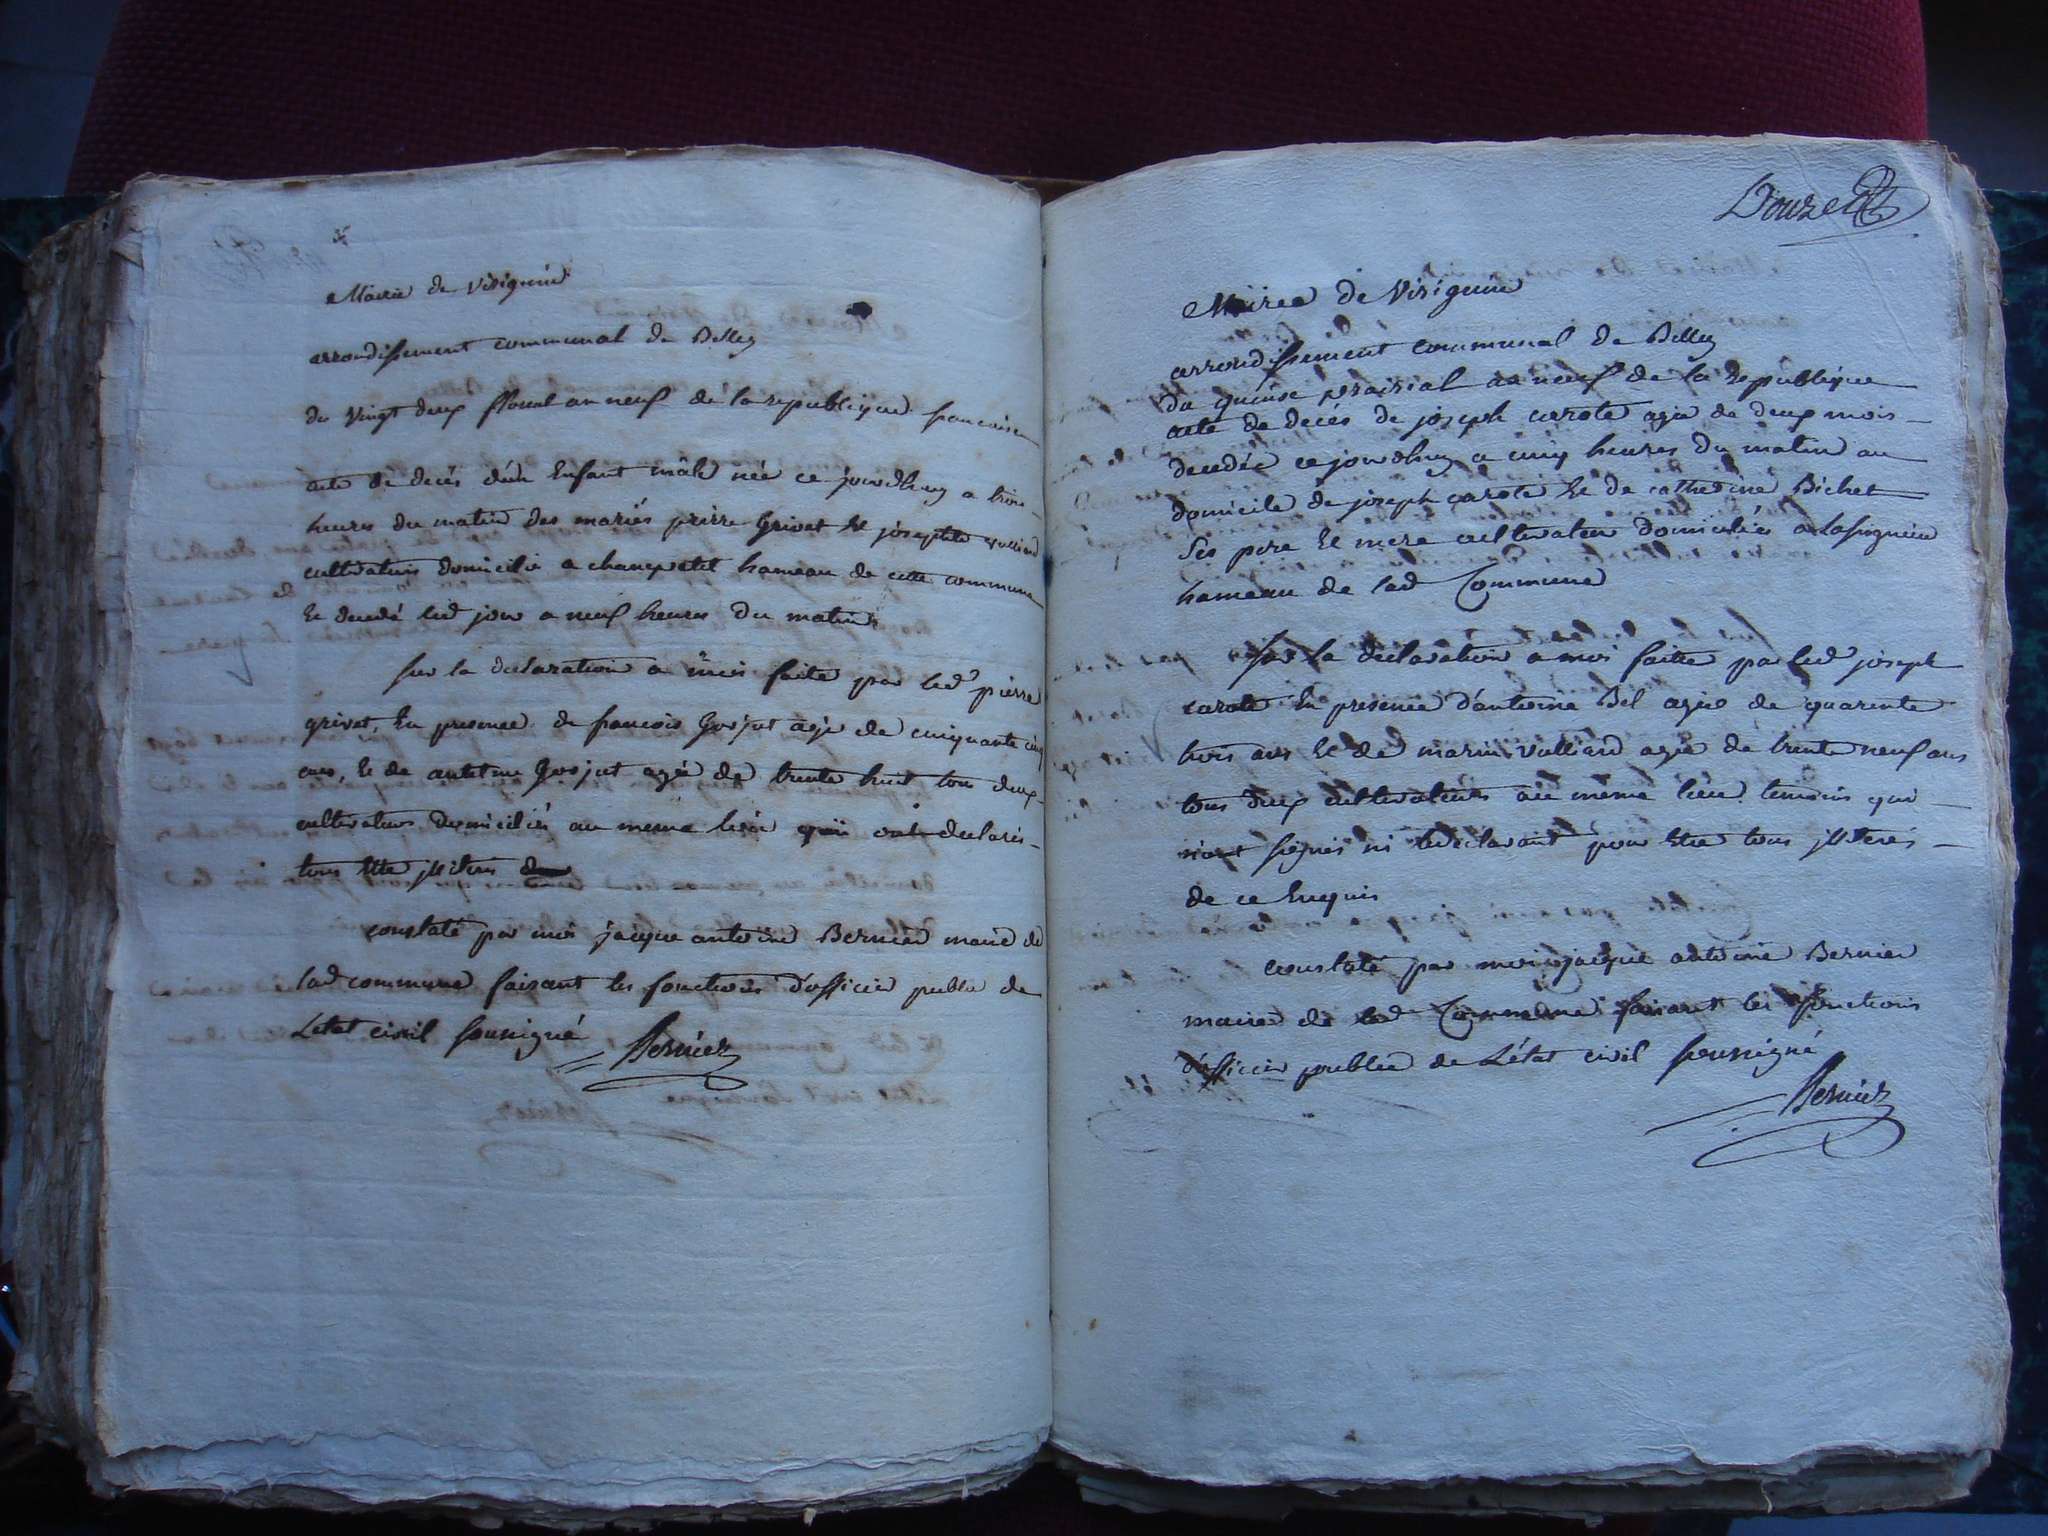 Mairie de Virignin
arrondissement communal de Belley
du vingt deux floreal an neuf de la republique francaise
acte de decés d'un Enfant mâle née ce jourdhuy a trois
heures du matin des mariés pierre Grivet Et josephte vulliard
cultivateurs domicilié a champtel hameau de cette commune
Et decedé led jour a neuf heures du matin
sur la declaration a moi faite par led pierre
grivet, En presence de francois Gojut agé de cinquante cinq
ans, Et de antelme Gojut agée de trente huit tous deux
cultivateurs domiciliés au meme lieu qui ont declarés
tous Etre illiterés
constaté par moi jacque antoine Bernier maire de
lad commune faisant les fonctions d'officier public de
Letat civil soussigné Bernier
Douze
Mairee de Virignin
arrondissement communal de Belley
du quinse prairial an neuf de la Republique
acte de decés de joseph carote agée de deux mois
decedée cejourdhuy a cinq heures du matin au
domicile de joseph carote Et de catherine Bichet
Ses pere Et mere cultivateur domiciliés a
hameau de lad Commune
Sur la declaration a moi faitte par led joseph
carote En presence d'antoine Bel agée de quarente
trois ans Et de marin vulliard agée de trente neuf ans
tous deux cultivateurs au même lieu temoins qui
n'ont signés ni ledeclarant pour Etre tous illiterés
de ce Enquis
constaté par moi jacque antoine Bernier
maire de lad Commune faisant les fonctions
d'officier publicc de L'état civil soussigné
Bernier